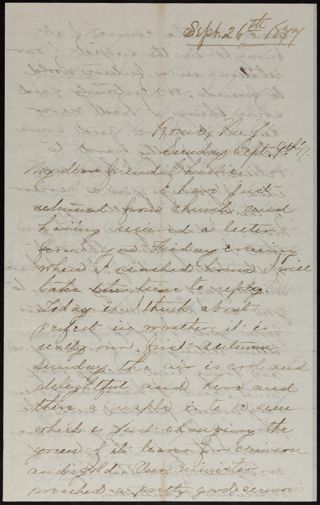 Sept. 26th 1877
Rome, 
Sunday, Sept. 9th
My dear friend
I have just
returned from church and
having received a letter
from you Friday evening
when I reached home I will
take the time to reply.
Today is I think about
perfect in weather it is
really our first autumn
Sunday. the air is cool and
delightful and here and
there a maple is to be seen
which is just changing the
green of its leaves for crimson
and gold. Our minister
preached a pretty good sermon